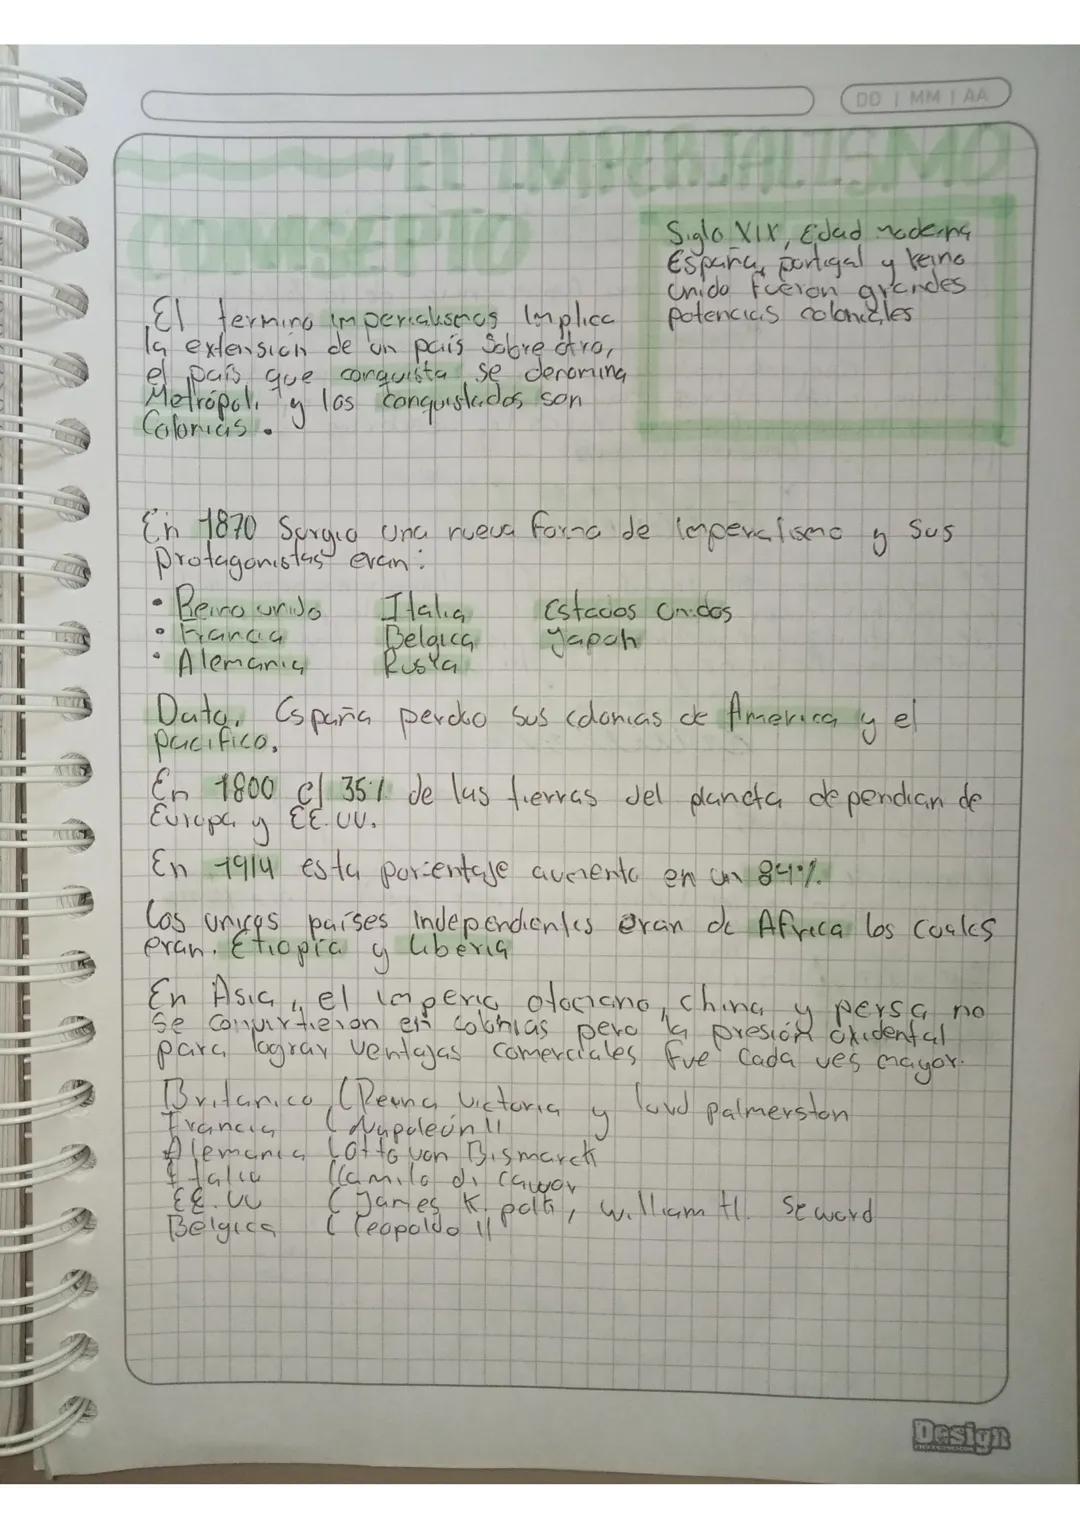 DD | MM | AA
EL IMPERIALISMO
CONSEPTO
Siglo XIX, Edad moderna
España, portugal y reino
unido fueron grandes
potencias coloniales
El termino imperialismos Implica
la extensión de un país sobre otro,
el país que conquista se denomina
Metrópoli y los conquistados son
Colonias.
En 1870 Surgio una nueva forma de imperalismo y sus
protagonistas eran:
• Reino unido Italia Estados Unidos
• Francia Belgica Japon
• Alemania Rusia
Dato, España perdio sus colonias de America y el
pacifico.
En 1800 el 35% de las tierras del planeta dependian de
Europa y EE.UU.
En 1914 esta porcentaje aumento en un 84%.
Los unicos países independientes eran de Africa los cuales
eran. Etiopia y Liberia
En Asia, el imperio otomano, china y persa no
se convirtieron en colonias pero la presión oxidental
para lograr ventajas comerciales fue cada ves mayor.
Britanico (Reina Victoria y lord palmerston
Francia (Napoleón II
Alemania (Otto von Bismarck
Italia (Camilo di cavour
EE.UU (James K. polk, william H. Seward
Belgica (Leopoldo II
Design